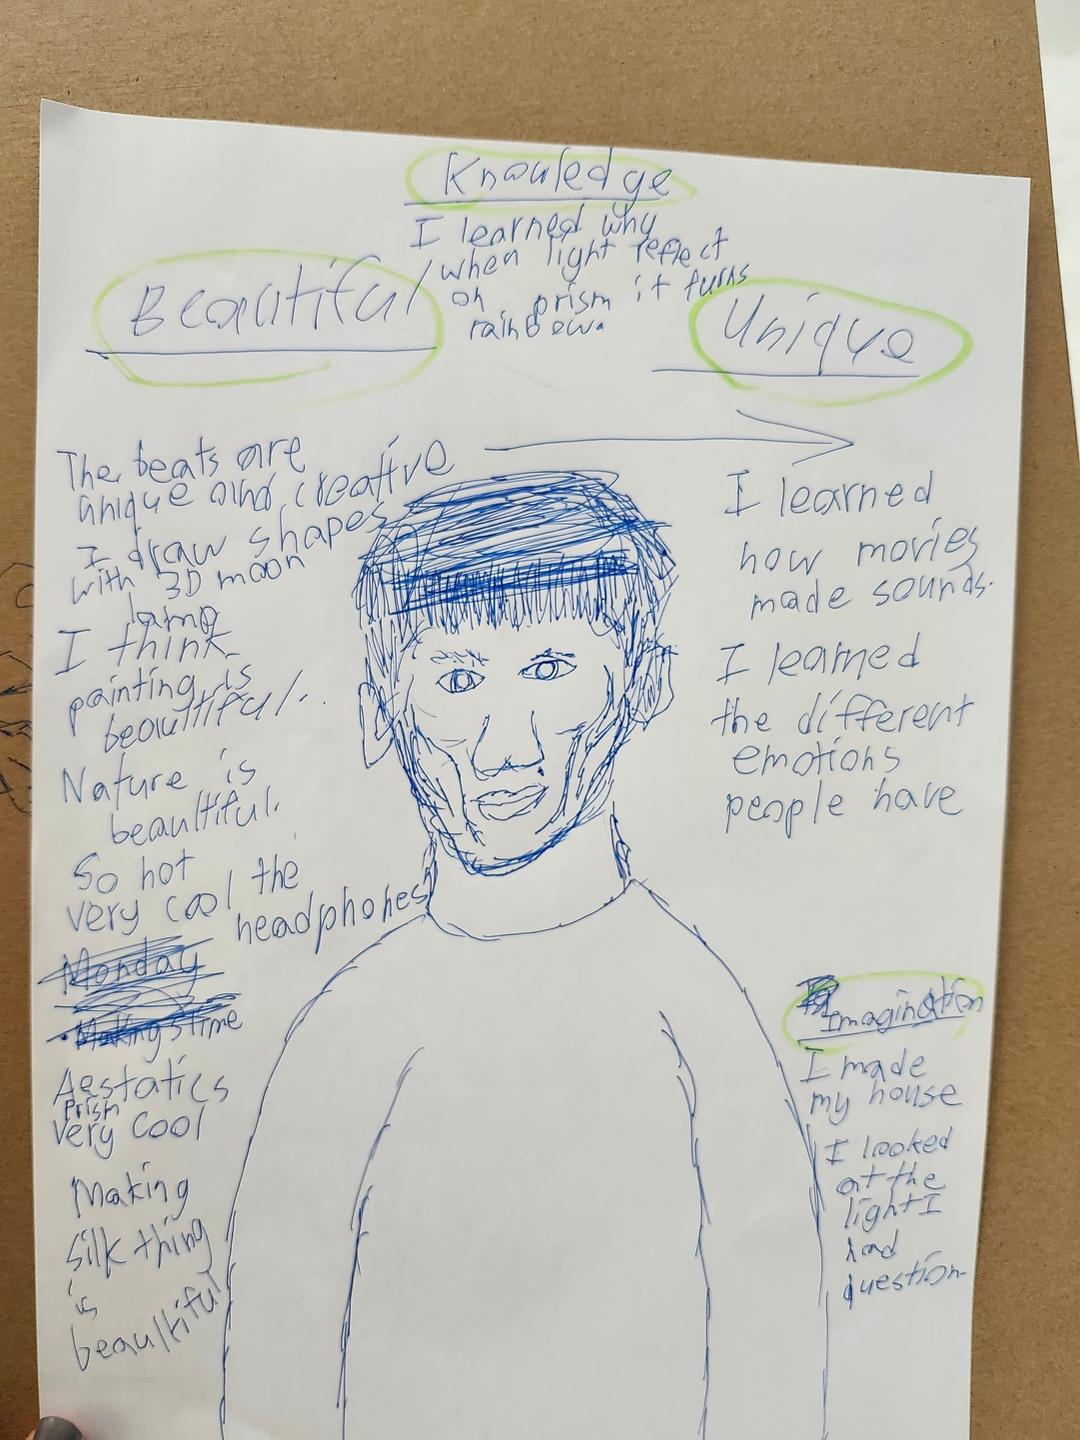 Knowledge
I learned why
when light reflect
on prism it turns
rainbow.
Beautiful
The beats are
unique and creative
I draw shapes
with 3D moon
lamp
I think
painting is
beautiful..
Nature is
beautiful.
So hot
very cool the
headphones
Monday
Making stime
Aestatics
Prism
very cool
Making
silk thing
is
beautiful
Unique
I learned
how movies
made sounds.
I learned
the different
emotions
people have
Imagination
I made
my house
I looked
at the
light I
had
question